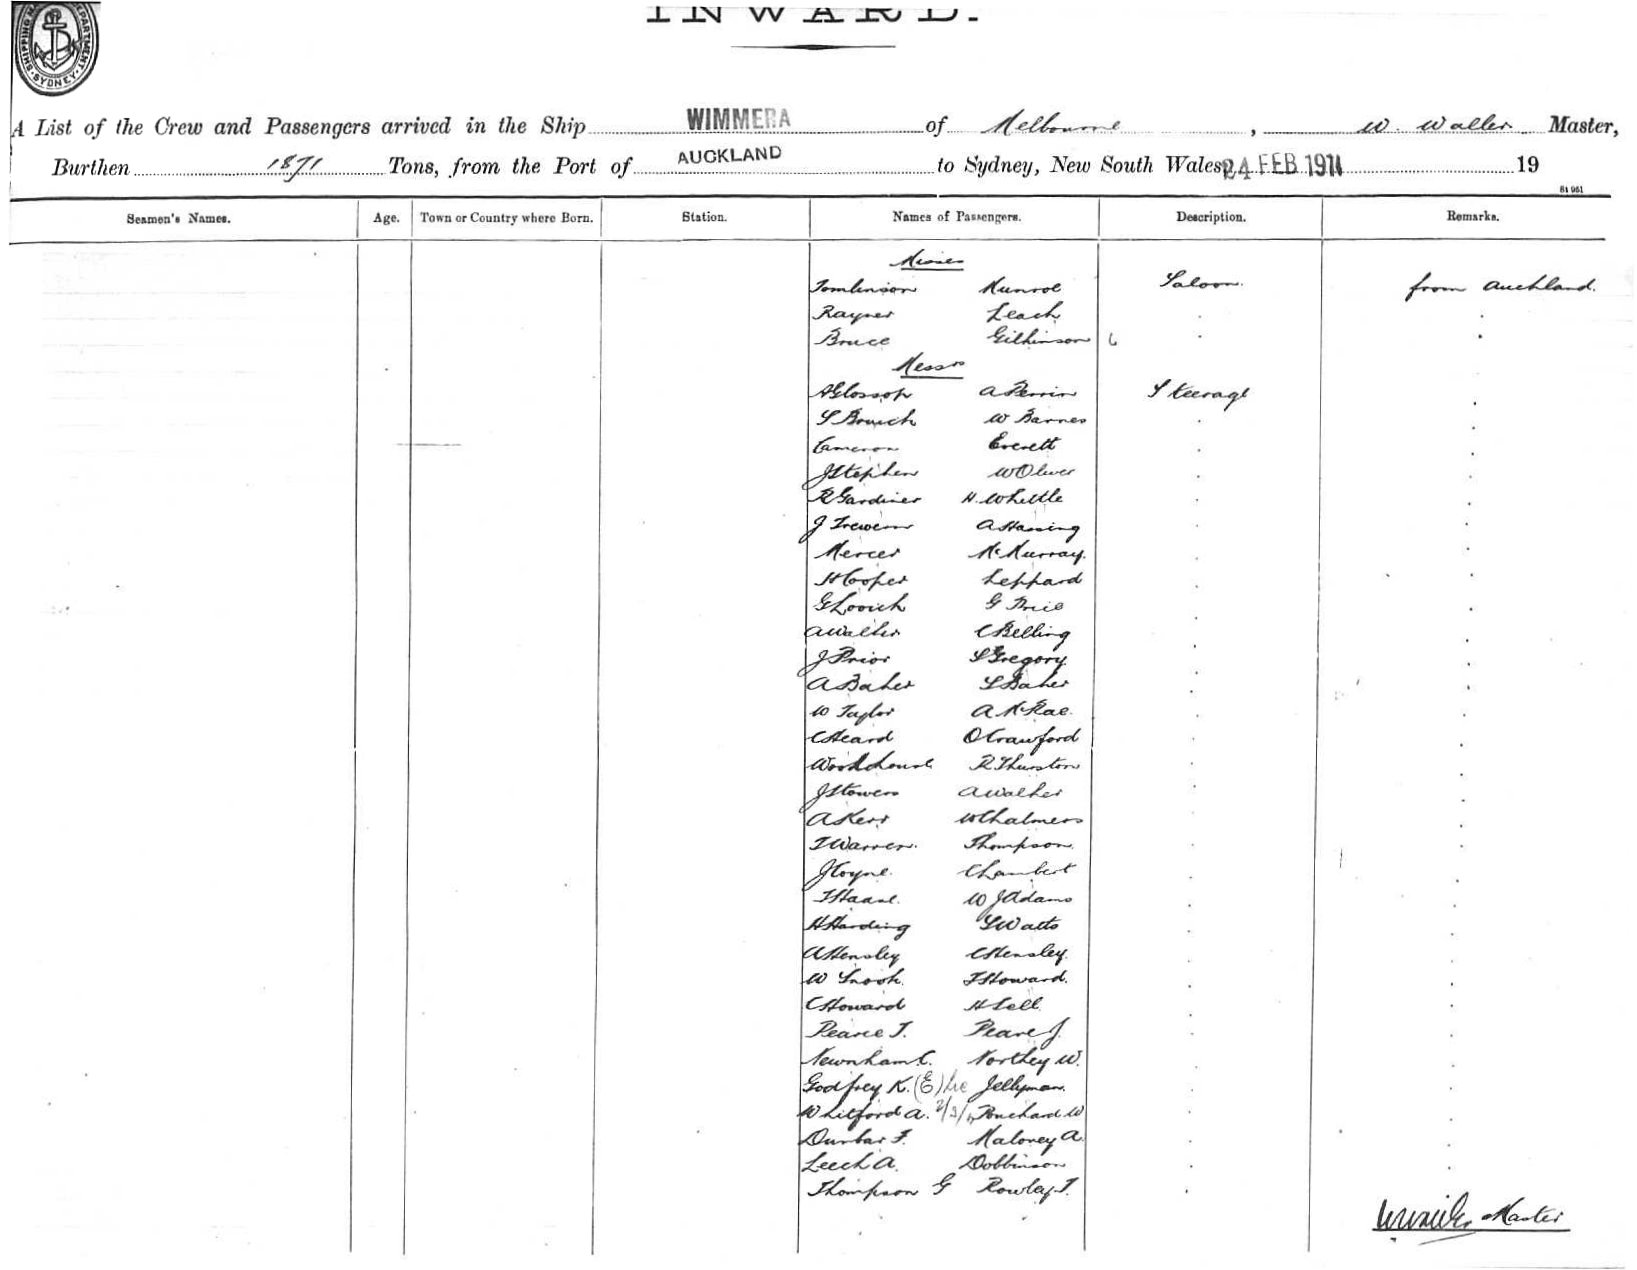 INWARD.
SHIPPING DEPARTMENT SYDNEY
A List of the Crew and Passengers arrived in the Ship WIMMERA of Melbourne, W. Waller Master,
Burthen 1871 Tons, from the Port of AUCKLAND to Sydney, New South Wales, 24 FEB 1911 19
81 961
Seamen's Names. Age. Town or Country where Born. Station. Names of Passengers. Description. Remarks.
Misses
Tomlinson Munroe Saloon. from Auckland.
Rayner Leach
Bruce Gilkinson 6
Messrs
A Glossop A Perrin Steerage
S W Barnes
Cameron Everett
J Stephen W Oliver
R Gardiner H. Whittle
J A
Mercer McMurray.
H Cooper Leppard
G Lovich G Price
A Walker C Belling
J Prior S Gregory
A Baker S Baker
W Taylor A McRae.
C Heard O Crawford
Woodhouse R Thurston
J Stowers A Walker
A Kerr W Chalmers
T Warren. Thompson.
J Coyne. C Lambert
T Haase. W J Adams
H Harding S Watts
A Hensley C Hensley.
W Snook. T Howard.
C Howard H Sell.
Pearce T. Pearce J.
Newnham C. Northey W.
Godfrey K. (E) Jellyman.
Whitford A. W
Dunbar F. Maloney A.
Leech A. Dobbinson
Thompson G Rowley T.
W Waller Master